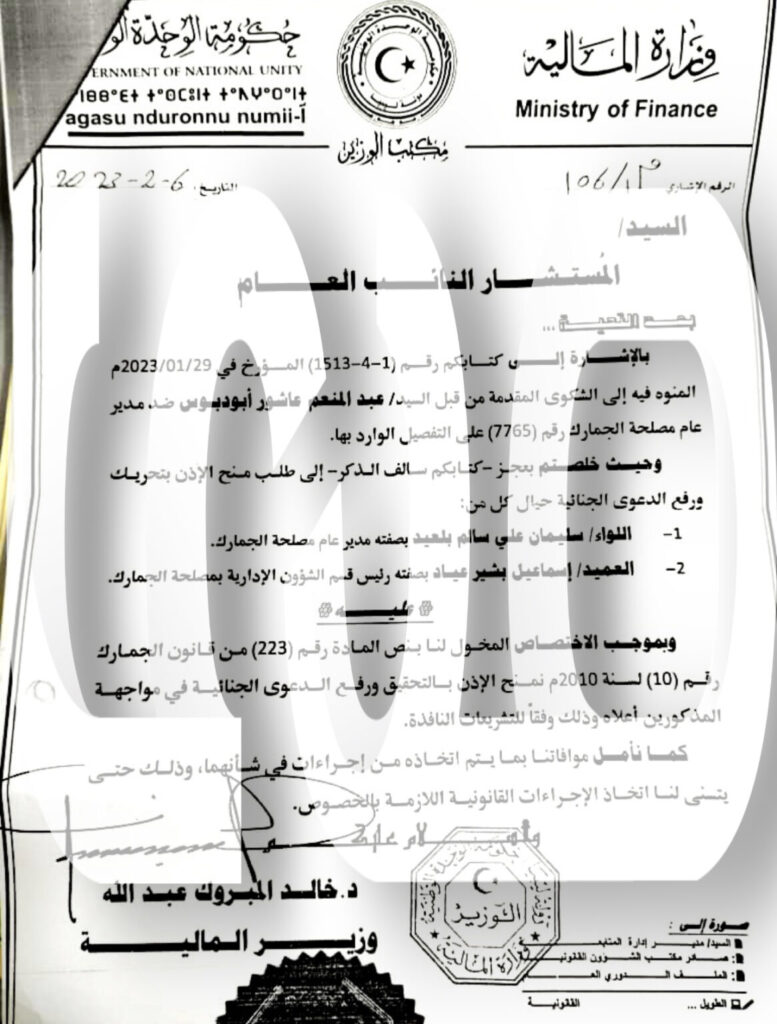 حكومة الوحدة الو
ERNMENT OF NATIONAL UNITY
agasu nduronnu numii-Ī
وزارة المالية
Ministry of Finance
مكتب الوزير
الرقم الإشاري 106/م
التاريخ: 6-2-2023
السيد/
المُستشار النائب العام
بعد التحية ...
بالإشارة إلى كتابكم رقم (1-4-1513) المؤرخ في 2023/01/29م
المنوه فيه إلى الشكوى المقدمة من قبل السيد/ عبد المنعم عاشور أبودبوس ضد مدير
عام مصلحة الجمارك رقم (7765) على التفصيل الوارد بها.
وحيث خلصتم بعجز –كتابكم سالف الذكر– إلى طلب منح الإذن بتحريك
ورفع الدعوى الجنائية حيال كل من:
1- اللواء/ سليمان علي سالم بلعيد بصفته مدير عام مصلحة الجمارك.
2- العميد/ إسماعيل بشير عياد بصفته رئيس قسم الشؤون الإدارية بمصلحة الجمارك.
# عليه #
وبموجب الاختصاص المخول لنا بنص المادة رقم (223) من قانون الجمارك
رقم (10) لسنة 2010م نمنح الإذن بالتحقيق ورفع الدعوى الجنائية في مواجهة
المذكورين أعلاه وذلك وفقاً للتشريعات النافدة.
كما نأمل موافاتنا بما يتم اتخاذه من إجراءات في شأنهما، وذلك حتى
يتسنى لنا اتخاذ الإجراءات القانونية اللازمة بالخصوص.
د. خالد المبروك عبد الله
وزير المالية
الوزير
وزارة المالية
صورة إلى :
السيد/ مدير إدارة المتابعة
مكتب الشؤون القانونية
الملف الدوري العام
الطويل ... القانونية